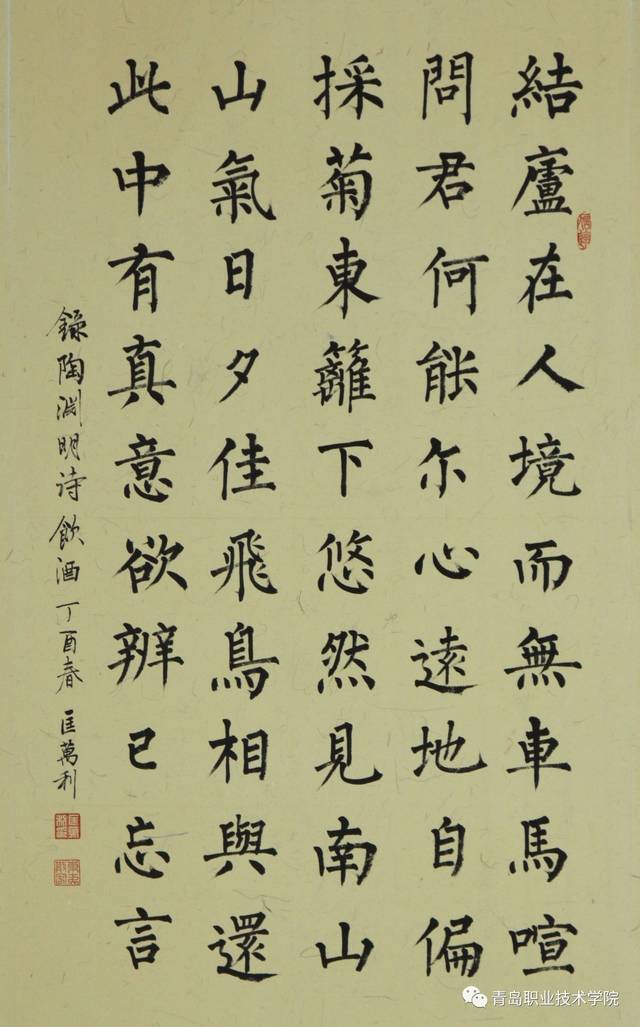 結廬在人境而無車馬喧
問君何能尔心遠地自偏
採菊東籬下悠然見南山
山氣日夕佳飛鳥相與還
此中有真意欲辨已忘言
錄陶淵明诗飲酒丁酉春匡萬利
青岛职业技术学院